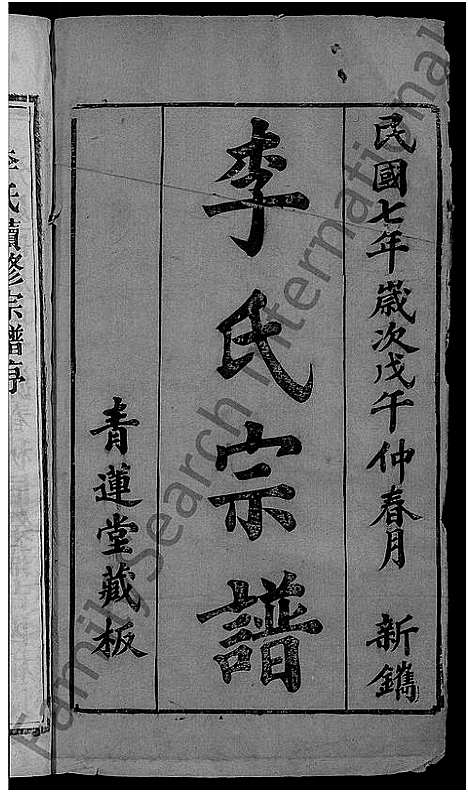 民國七年歲次戊午仲春月　新鐫
李氏宗譜
青蓮堂藏板
李氏續修宗譜序
Family Search International